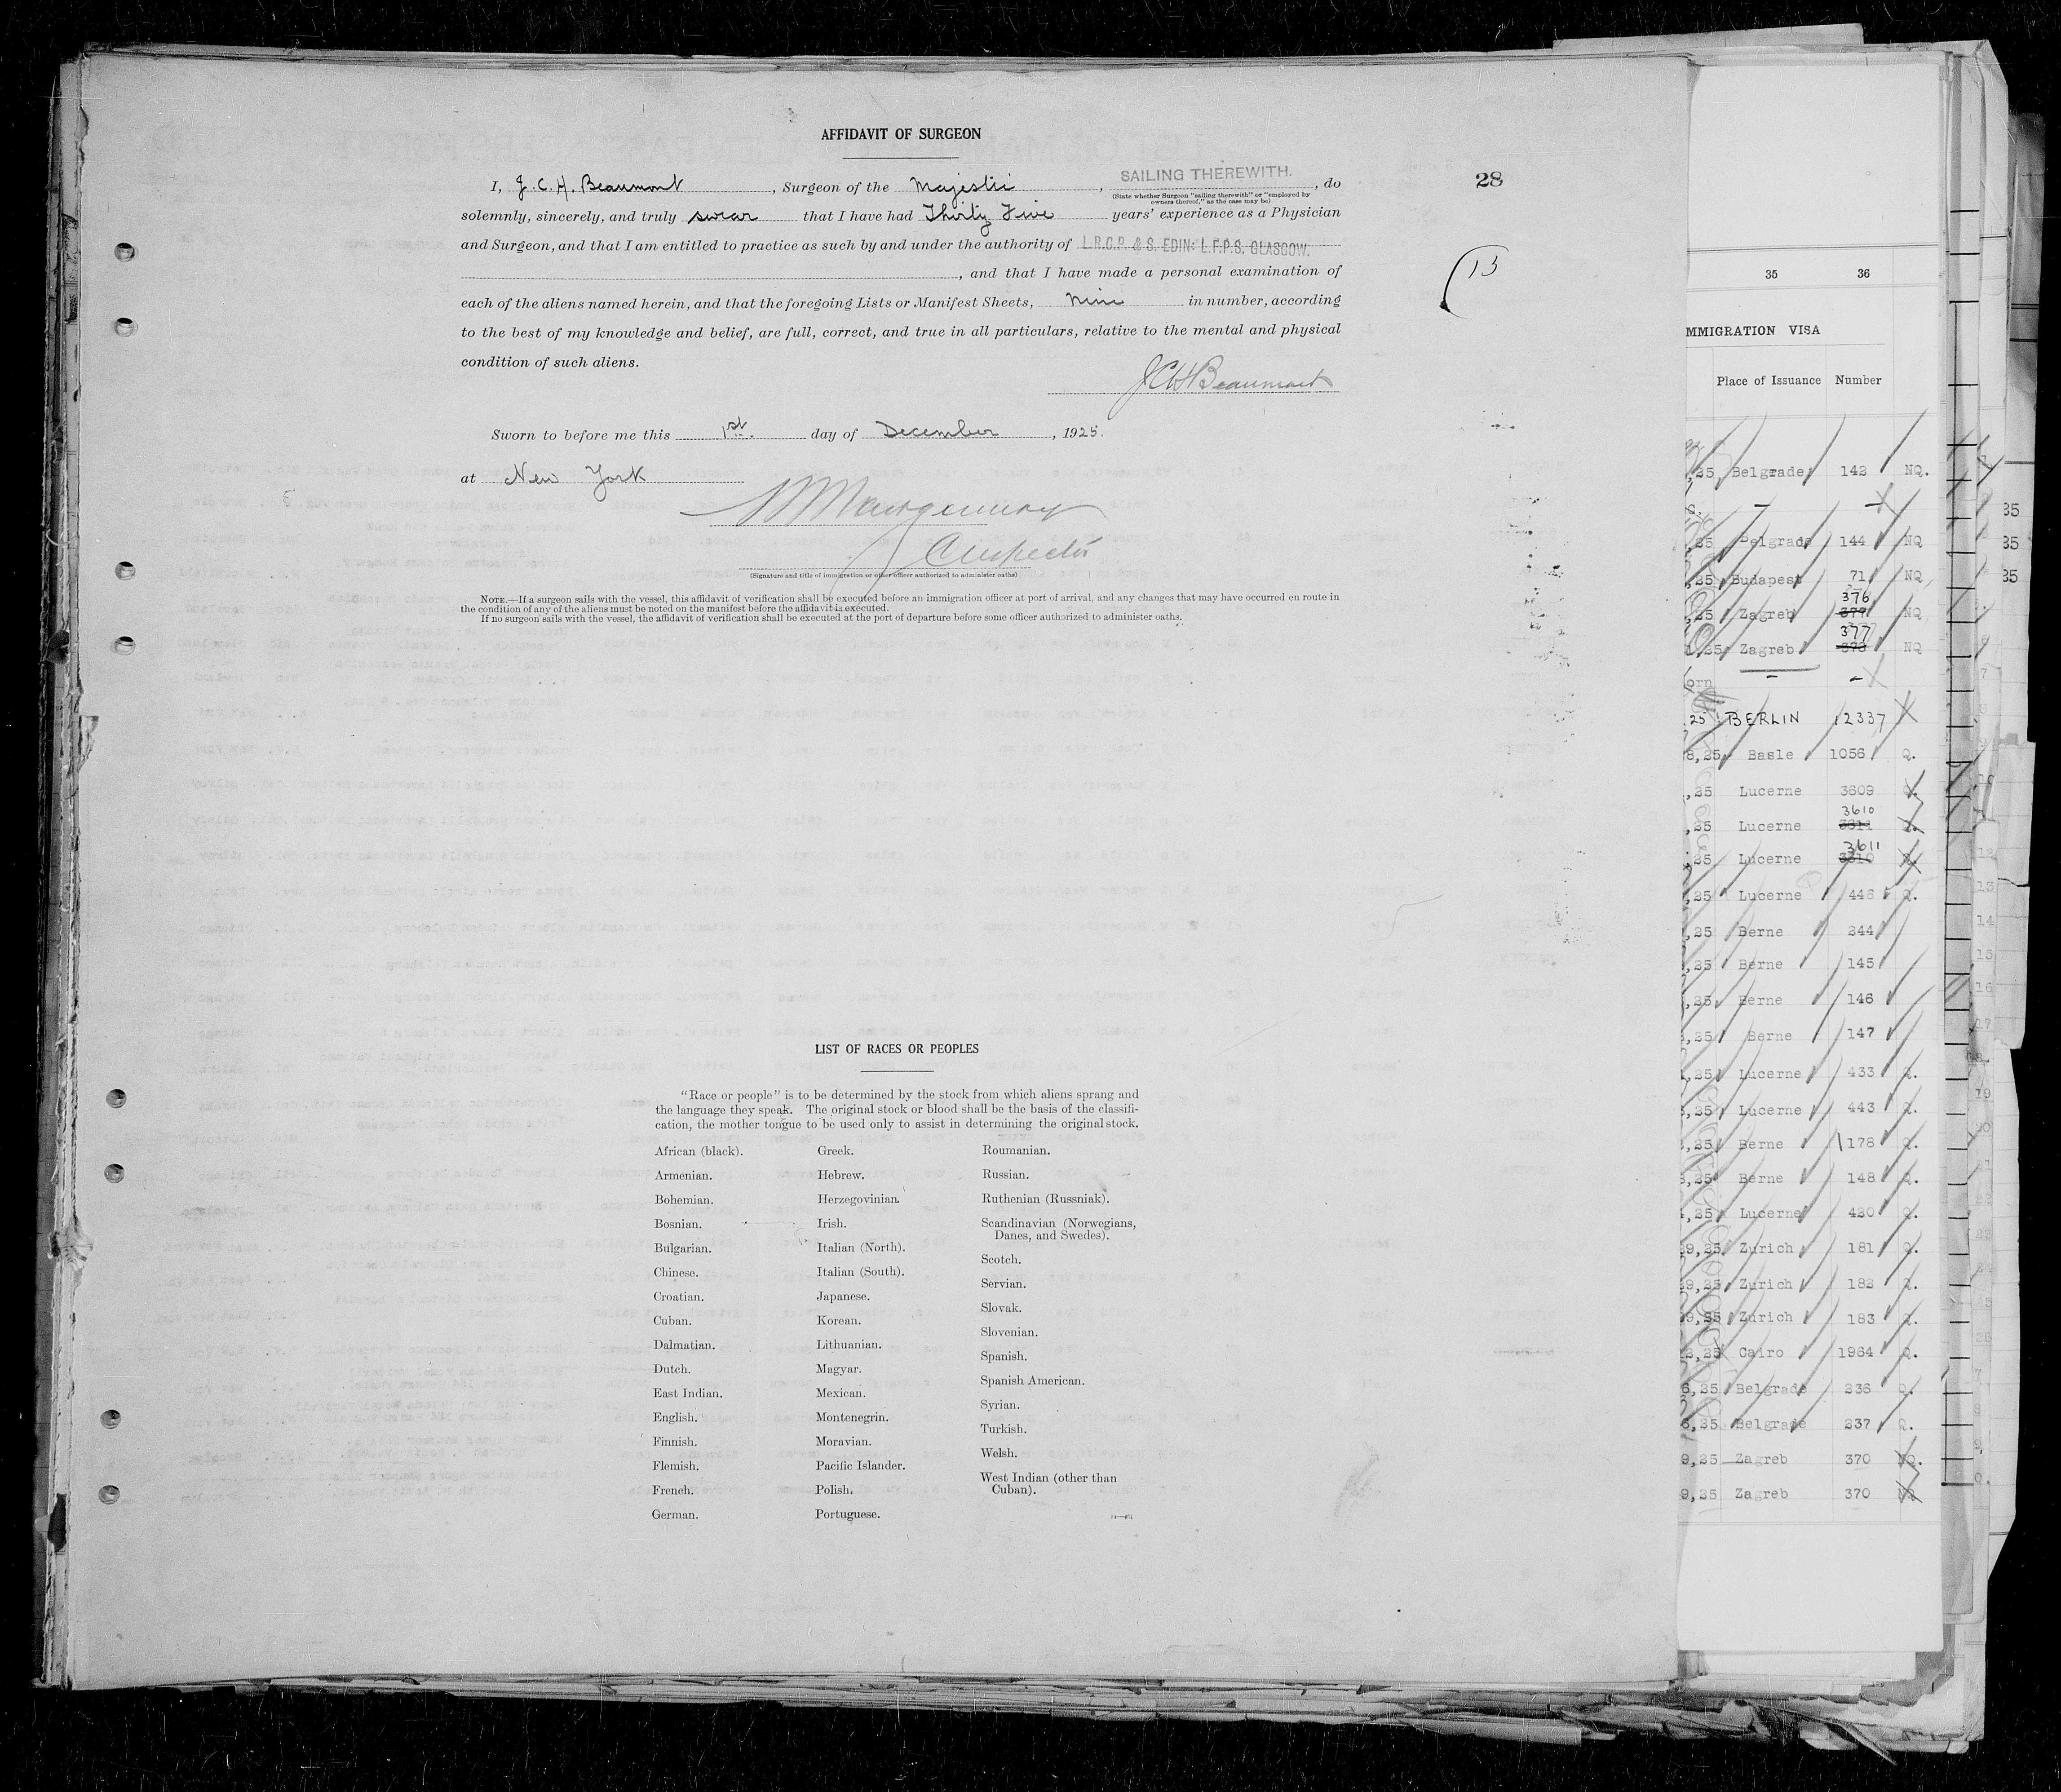 AFFIDAVIT OF SURGEON
I, J. C. H. Beaumont, Surgeon of the Majestic, SAILING THEREWITH., do
(State whether Surgeon "sailing therewith" or "employed by
owners thereof," as the case may be)
28
solemnly, sincerely, and truly swear that I have had Thirty Five years' experience as a Physician
and Surgeon, and that I am entitled to practice as such by and under the authority of L.R.C.P. & S. EDIN: L.F.P.S. GLASGOW.
, and that I have made a personal examination of
each of the aliens named herein, and that the foregoing Lists or Manifest Sheets, nine in number, according
to the best of my knowledge and belief, are full, correct, and true in all particulars, relative to the mental and physical
condition of such aliens.
JCHBeaumont
Sworn to before me this 1st. day of December, 1925.
at New York
Inspector
(Signature and title of immigration or other officer authorized to administer oaths)
NOTE.—If a surgeon sails with the vessel, this affidavit of verification shall be executed before an immigration officer at port of arrival, and any changes that may have occurred en route in
the condition of any of the aliens must be noted on the manifest before the affidavit is executed.
If no surgeon sails with the vessel, the affidavit of verification shall be executed at the port of departure before some officer authorized to administer oaths.
LIST OF RACES OR PEOPLES
"Race or people" is to be determined by the stock from which aliens sprang and
the language they speak. The original stock or blood shall be the basis of the classifi-
cation, the mother tongue to be used only to assist in determining the original stock.
African (black).
Armenian.
Bohemian.
Bosnian.
Bulgarian.
Chinese.
Croatian.
Cuban.
Dalmatian.
Dutch.
East Indian.
English.
Finnish.
Flemish.
French.
German.
Greek.
Hebrew.
Herzegovinian.
Irish.
Italian (North).
Italian (South).
Japanese.
Korean.
Lithuanian.
Magyar.
Mexican.
Montenegrin.
Moravian.
Pacific Islander.
Polish.
Portuguese.
Roumanian.
Russian.
Ruthenian (Russniak).
Scandinavian (Norwegians,
Danes, and Swedes).
Scotch.
Servian.
Slovak.
Slovenian.
Spanish.
Spanish American.
Syrian.
Turkish.
Welsh.
West Indian (other than
Cuban).
35 36
MMIGRATION VISA
Place of Issuance Number
,25 Belgrade 142 NQ.
,25 Belgrade 144 NQ
,25 Budapest 71 NQ
376
,25 Zagreb NQ
377
,25 Zagreb NQ
orn
25 BERLIN 12337
8,25 Basle 1056 Q.
,25 Lucerne 3609 Q.
3610
,25 Lucerne Q.
3611
,25 Lucerne Q.
,25 Lucerne 446 Q.
,25 Berne 244
,25 Berne 145
,25 Berne 146
,25 Berne 147
,25 Lucerne 433 Q.
,25 Lucerne 443 Q.
,25 Berne 178 Q.
,25 Berne 148 Q.
,25 Lucerne 420 Q.
9,25 Zurich 181 Q.
9,25 Zurich 182 Q.
9,25 Zurich 183 Q.
,25 Cairo 1964 Q.
6,25 Belgrade 236 Q.
6,25 Belgrade 237 Q.
9,25 Zagreb 370
9,25 Zagreb 370